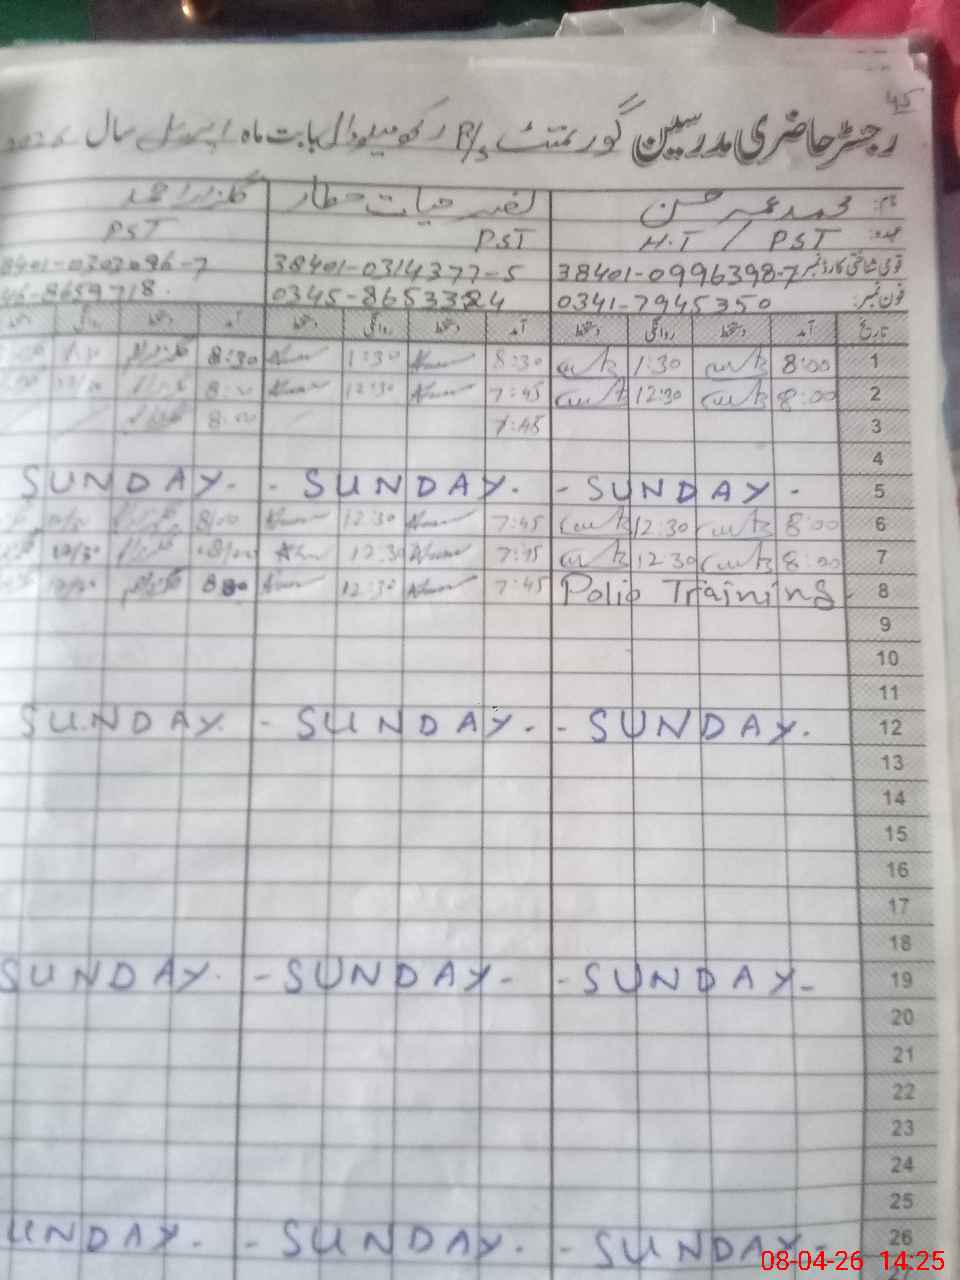 45
رجسٹر حاضری مدرسین گورنمنٹ P/S رکھ میلووال بابت ماہ اپریل سال
نام: محمد عمر حسن لفسر حیات گلزار احمد
عہدہ: H.T / PST PST PST
قومی شناختی کارڈ نمبر 38401-0996398-7 38401-0314377-5 8401-0303096-7
فون نمبر: 0341-7945350 0345-8653324 46-8659718
تاریخ آمد دستخط روانگی دستخط آمد دستخط روانگی دستخط آمد دستخط روانگی
1 8:00 1:30 8:30 1:30 8:30
2 8:00 12:30 7:45 12:30
3 7:45 8:00
4
5 - SUNDAY - - SUNDAY. SUNDAY.
6 8:00 12:30 7:45 12:30 8:00
7 8:00 12:30 7:45 12:30
8 Polio Training 7:45 12:30
9
10
11
12 - SUNDAY. - SUNDAY. SUNDAY.
13
14
15
16
17
18
19 - SUNDAY - - SUNDAY - SUNDAY.
20
21
22
23
24
25
26 - SUNDAY - - SUNDAY. UNDAY.
08-04-26 14:25